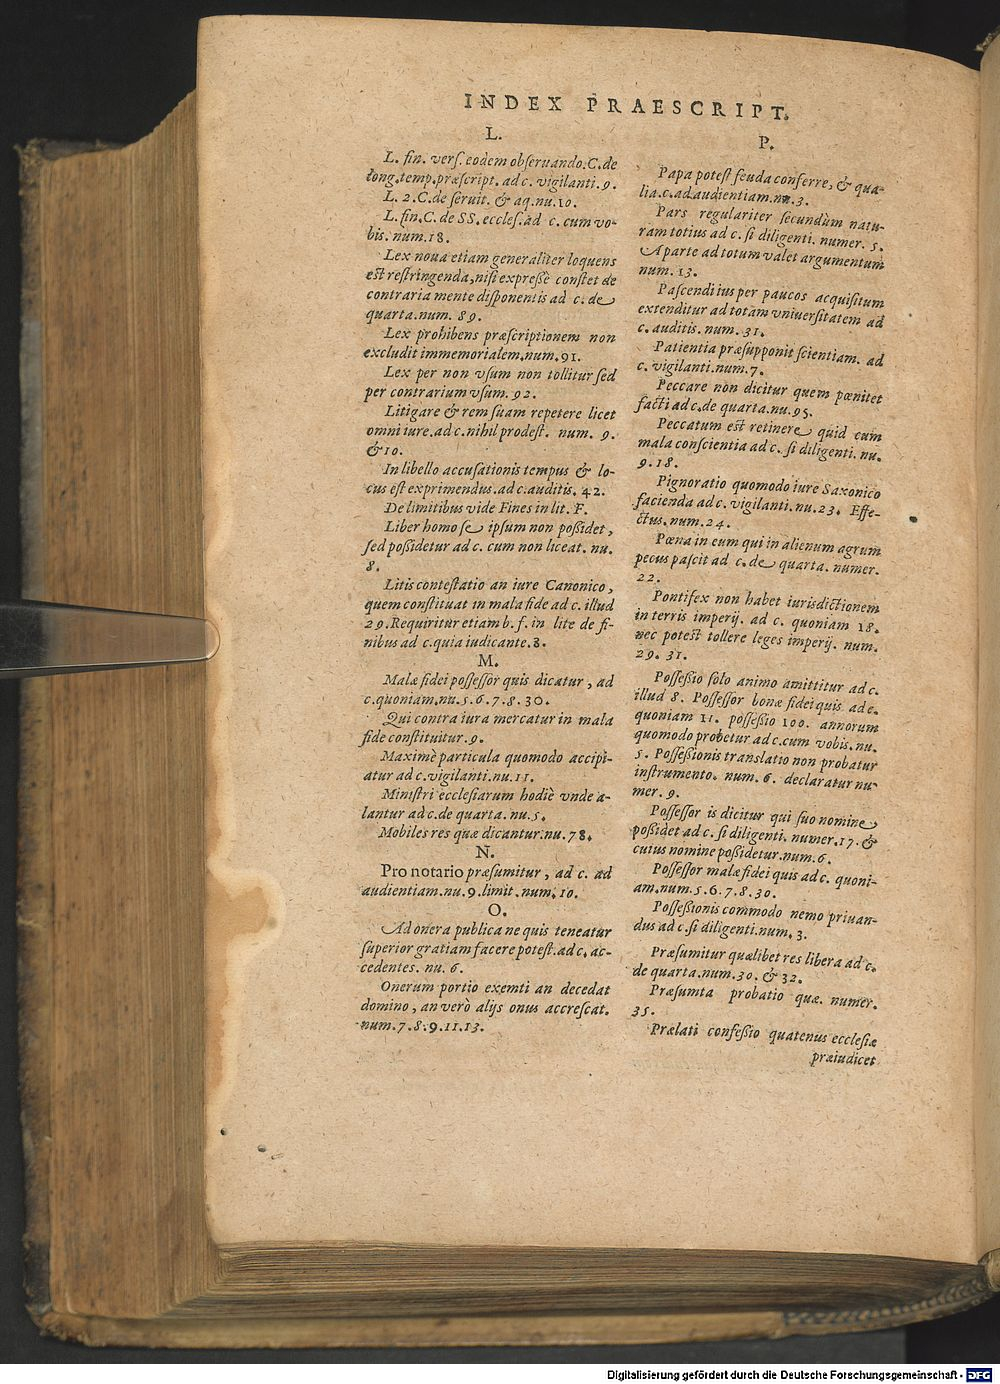 INDEX PRAESCRIPT.
L.
L. fin. verſ. eodem obſeruando. C. de
long. temp. præſcript. ad c. vigilanti. 9.
L. 2. C. de ſeruit. & aq. nu. 10.
L. fin. C. de SS. eccleſ. ad c. cum vo-
bis. num. 18.
Lex noua etiam generaliter loquens
eſt reſtringenda, niſi expreſsè conſtet de
contraria mente diſponentis ad c. de
quarta. num. 89.
Lex prohibens præſcriptionem non
excludit immemorialem. num. 91.
Lex per non vſum non tollitur ſed
per contrarium vſum. 92.
Litigare & rem ſuam repetere licet
omni iure. ad c. nihil prodeſt. num. 9.
& 10.
In libello accuſationis tempus & lo-
cus eſt exprimendus. ad c. auditis. 42.
De limitibus vide Fines in lit. F.
Liber homo ſe ipſum non poßidet,
ſed poßidetur ad c. cum non liceat. nu.
8.
Litis conteſtatio an iure Canonico,
quem conſtituat in mala fide ad c. illud
29. Requiritur etiam b. f. in lite de fi-
nibus ad c. quia iudicante. 8.
M.
Malæ fidei poſſeſſor quis dicatur, ad
c. quoniam. nu. 5. 6. 7. 8. 30.
Qui contra iura mercatur in mala
fide conſtituitur. 9.
Maximè particula quomodo accipi-
atur ad c. vigilanti. nu. 11.
Miniſtri eccleſiarum hodiè vnde a-
lantur ad c. de quarta. nu. 5.
Mobiles res quæ dicantur. nu. 78.
N.
Pro notario præſumitur, ad c. ad
audientiam. nu. 9. limit. num. 10.
O.
Ad onera publica ne quis teneatur
ſuperior gratiam facere poteſt. ad c. ac-
cedentes. nu. 6.
Onerum portio exemti an decedat
domino, an verò alijs onus accreſcat.
num. 7. 8. 9. 11. 13.
P.
Papa poteſt feuda conferre, & qua-
lia. c. ad audientiam. nu. 3.
Pars regulariter ſecundùm natu-
ram totius ad c. ſi diligenti. numer. 5.
A parte ad totum valet argumentum
num. 13.
Paſcendi ius per paucos acquiſitum
extenditur ad totam vniuerſitatem ad
c. auditis. num. 31.
Patientia præſupponit ſcientiam. ad
c. vigilanti. num. 7.
Peccare non dicitur quem pœnitet
facti ad c. de quarta. nu. 95.
Peccatum eſt retinere quid cum
mala conſcientia ad c. ſi diligenti. nu.
9. 18.
Pignoratio quomodo iure Saxonico
facienda ad c. vigilanti. nu. 23. Effe-
ctus. num. 24.
Pœna in eum qui in alienum agrum
pecus paſcit ad c. de quarta. numer.
22.
Pontifex non habet iurisdictionem
in terris imperij. ad c. quoniam 18.
nec poteſt tollere leges imperij. num.
29. 31.
Poſſeßio ſolo animo amittitur ad c.
illud 8. Poſſeſſor bonæ fidei quis ad c.
quoniam 11. poſſeßio 100. annorum
quomodo probetur ad c. cum vobis. nu.
5. Poſſeßionis translatio non probatur
inſtrumento. num. 6. declaratur nu-
mer. 9.
Poſſeſſor is dicitur qui ſuo nomine
poßidet ad c. ſi diligenti. numer. 17. &
cuius nomine poßidetur. num. 6.
Poſſeſſor malæ fidei quis ad c. quoni-
am. num. 5. 6. 7. 8. 30.
Poſſeßionis commodo nemo priuan-
dus ad c. ſi diligenti. num. 3.
Præſumitur quælibet res libera ad c.
de quarta. num. 30. & 32.
Præſumta probatio quæ. numer.
35.
Prælati confeßio quatenus eccleſiæ
præiudicet
Digitalisierung gefördert durch die Deutsche Forschungsgemeinschaft - DFG